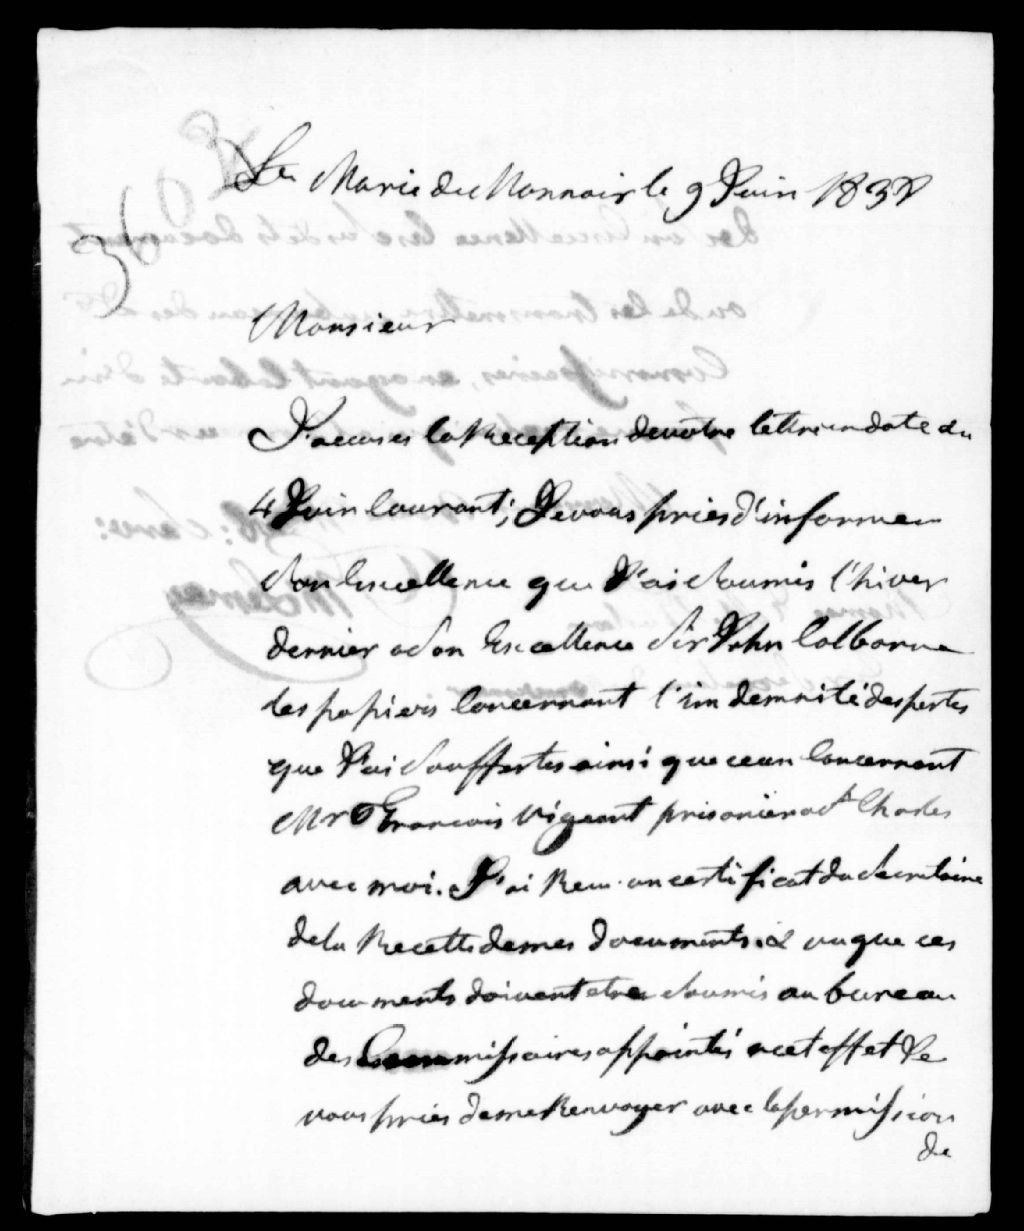 Ste Marie du Monnoir le 9 Juin 1838
Monsieur
J'accuses la Reception de votre lettre en date du
4 Juin Courant; Je vous pries d'informer
Son Excellence que J'ai Soumis l'hiver
dernier a Son Excellence Sir John Colborne
les papiers Concernant l'indemnité des pertes
que J'ai Souffertes ainsi que ceux Concernant
Mr Francois Vigeant prisonier a St Charles
avec moi. J'ai Recu un certificat du Secretaire
de la Recette de mes documents. & vu que ces
documents doivent etre Soumis au bureau
des Commissaires appointés a cet effet Je
vous pries de me Renvoyer avec la permission
de